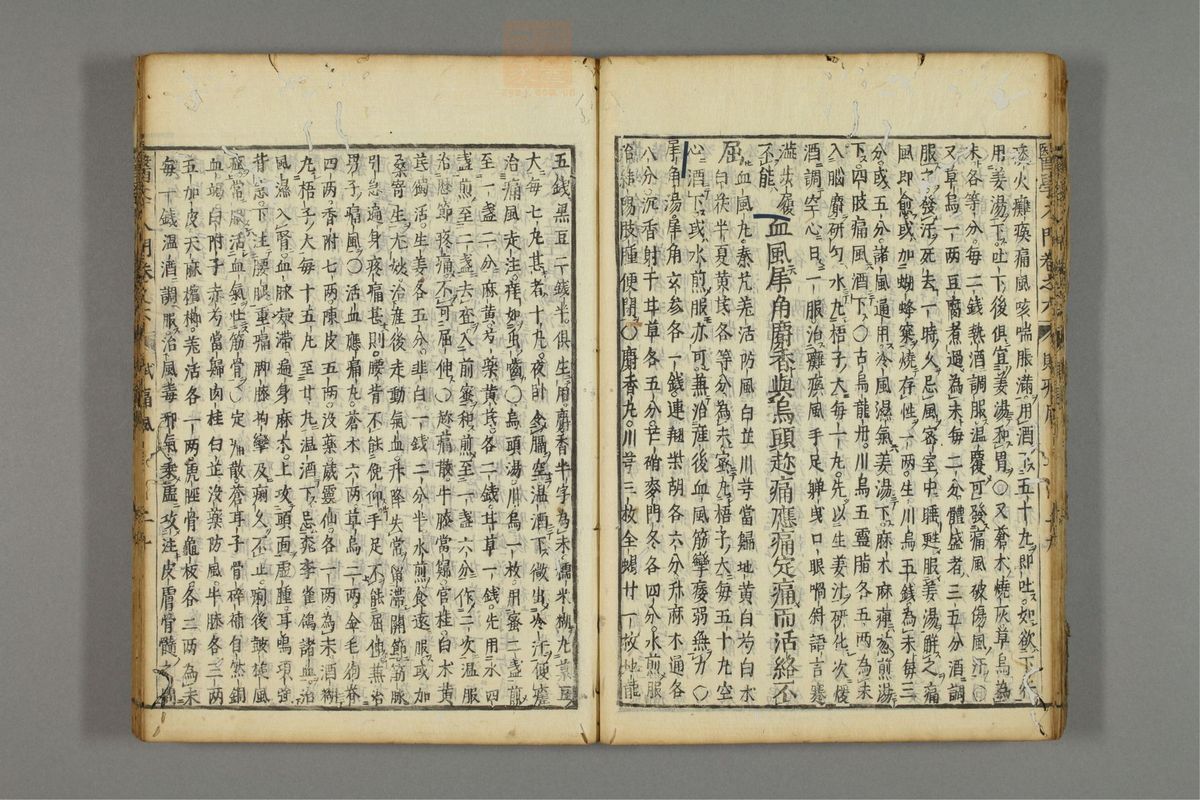 痰火癱瘓痛風咳喘脹滿用酒下五十丸即吐如欲下行
用姜湯下吐下後俱宜姜湯和胃〇又蒼术燒灰草烏為
末各等分每二錢熱酒調服溫覆可發痛風破傷風汗〇
又草烏一兩豆腐煮過為末每二分體盛者三五分酒調
服之發汗死去一時久忌風密室中聽甦服姜湯解之痛
風即愈或加蜈蜂窠燒存性一兩生川烏五錢為末每三
分或五分諸風通用冷風濕氣姜湯下麻木麻痺葱煎湯
下四肢痛風酒下〇古烏龍丹川烏五靈脂各五兩為末
入腦麝研勻水丸梧子大每一丸先以生姜汁研化次煖
酒調空心日一服治癱瘓風手足嚲曳口眼喎斜語言蹇
澁步履
不能 血風犀角麝香與烏頭趂痛應痛定痛而活絡丕
屈 血風丸秦艽羌活防風白芷川芎當歸地黃白芍白朮
茯半夏黃芪各等分為末蜜丸梧子大每五十丸空
心酒下或水煎服亦可兼治產後血風筋攣痿弱無力〇
犀角湯犀角玄參各一錢連翹柴胡各六分升麻木通各
八分沉香射干甘草各五分芒硝麥門冬各四分水煎服
治結陽肢腫便閉〇麝香丸川芎三枚全蝎廿一枚地龍
五錢黑豆二錢半俱生用麝香半字為末糯米糊丸菉豆
大每七丸甚者十丸夜卧令膈空溫酒下微出冷汗便瘥
治痛風走注痒如虫嚙〇烏頭湯川烏一枚用蜜二盞煎
至一盞二分麻黃芍藥黃芪各二錢甘草一錢先用水四
盞煎至二盞去查入前蜜和煎至一盞六分作二次溫服
治歷節疼痛不可屈伸〇趂痛散牛膝當歸官桂白朮黃
芪獨活生姜各五分韭白一錢二分半水煎食遠服或加
桑寄生尤妙治產後走動氣血升降失常留滯關節筋脉
引急遍身疼痛甚則腰背不能俛仰手足不能屈伸兼治
男子痛風〇活血應痛丸蒼朮六兩草烏二兩金毛狗脊
四兩香附七兩陳皮五兩沒藥威靈仙各一兩為末酒糊
丸梧子大每十五丸至廿丸溫酒下忌桃李雀鴿諸血治
風濕入腎血脉凝滯遍身麻木上攻頭面虛腫耳鳴項強
背急下注腰腿重痛脚膝拘攣及痢久不止痢後皷搥風
常服活血氣壯筋骨〇定痛散蒼耳子骨碎補自然銅
血竭白附子赤芍當歸肉桂白芷沒藥防風牛膝各三兩
五加皮天麻檳榔羌活各一兩虎脛骨龜板各二兩為末
每一錢溫酒調服治風毒邪氣乘虛攻注皮膚骨髓之間